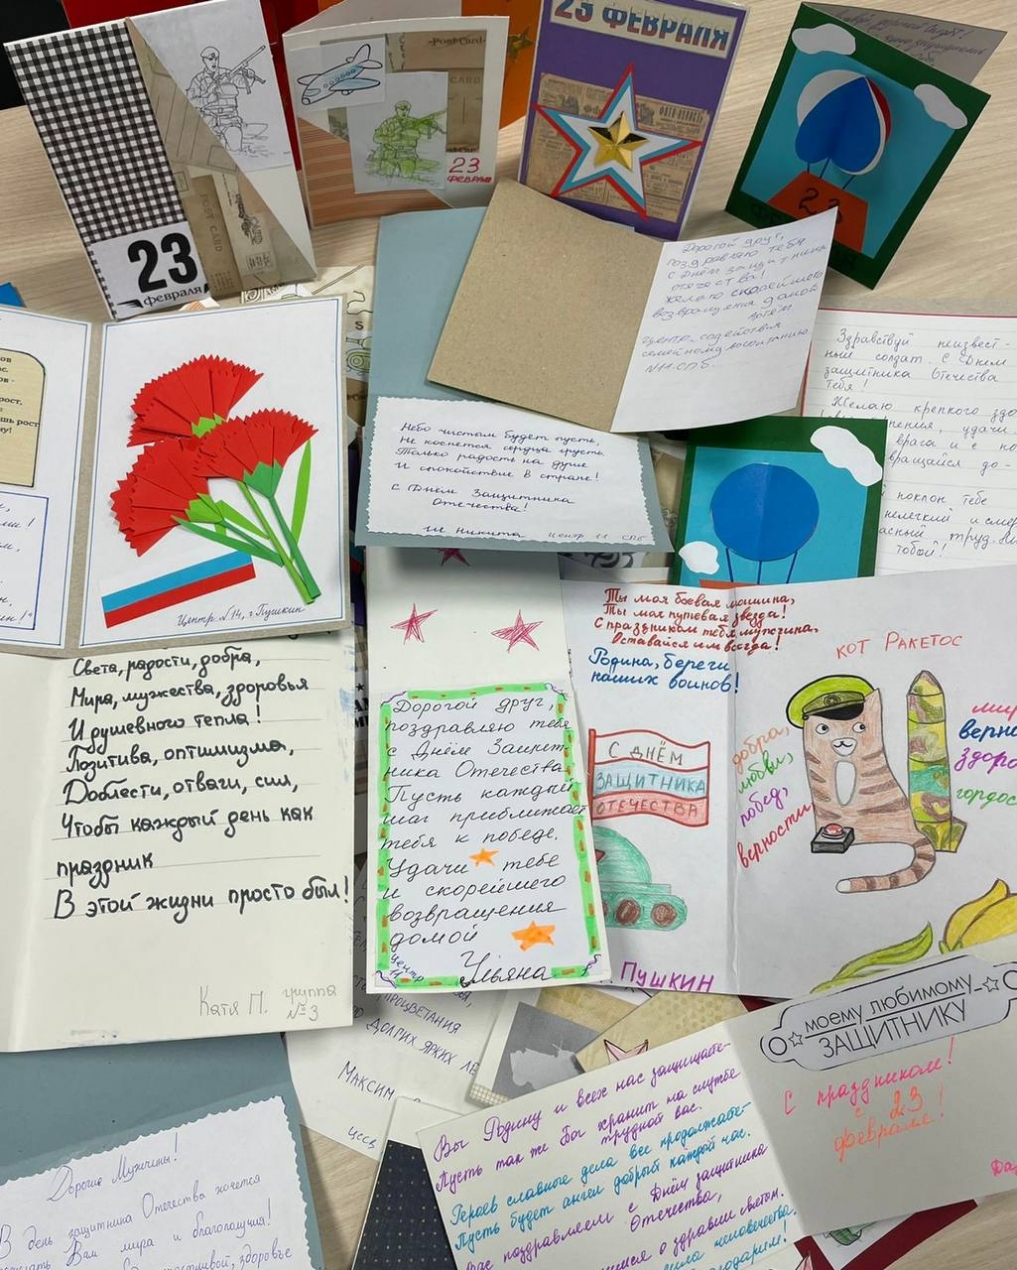 23
февраля
PostCard
CARD
POST CARD
23
ФЕВРАЛЯ
23 ФЕВРАЛЯ
23
Дорогой друг,
поздравляю тебя
с Днём защитника
отечества!
Желаю скорейшего
возвращения домой
Артём
Центр содействия
семейному воспитанию
N11 СПб.
Здравствуй неизвест-
ный солдат. С Днем
защитника Отечества
тебя!
Желаю крепкого здо
удачи
врага и с по
вращайся до-
поклон тебе
нелегкий и
асный труд.
тобой!
Небо чистым будет пусть,
Не коснется сердца грусть
Только радость на душе
И спокойствие в стране!
С Днём Защитника
Отечества!
Никита центр 11 СПб
Центр №14, г. Пушкин
Света, радости, добра,
Мира, мужества, здоровья
И душевного тепла!
Позитива, оптимизма,
Доблести, отваги, сил,
Чтобы каждый день как
праздник
В этой жизни просто был!
Катя П. группа
№3
Дорогой друг,
поздравляю тебя
с Днём Защит-
ника Отечества.
Пусть каждый
шаг приближает
тебя к победе.
Удачи тебе
и скорейшего
возвращения
домой
Центр
Ульяна
Ты моя боевая машина,
Ты моя путевая звезда!
С праздником тебя мужчина,
Оставайся им всегда!
Родина, береги
наших воинов!
С ДНЁМ
ЗАЩИТНИКА
ОТЕЧЕСТВА
ПУШКИН
КОТ РАКЕТОС
добра,
любви,
побед,
верности
мир
верно
здоро
гордос
ПРОЦВЕТАНИЯ
ДОЛГИХ ЯРКИХ ЛЕ
МАКСИМ
моему любимому
ЗАЩИТНИКУ
С праздником!
с 23
февраля!
Вы Родину и всех нас защищаете-
Пусть так же Бог хранит на службе
трудной вас.
Героев славные дела вы продолжаете-
Пусть будет ангел добрый каждый час.
Вас поздравляем с Днём защитника
Отечества,
о здравии
человечества
Дорогие Мужчины!
В день защитника Отечества хочется
Вам мира и благополучия!
здоровье